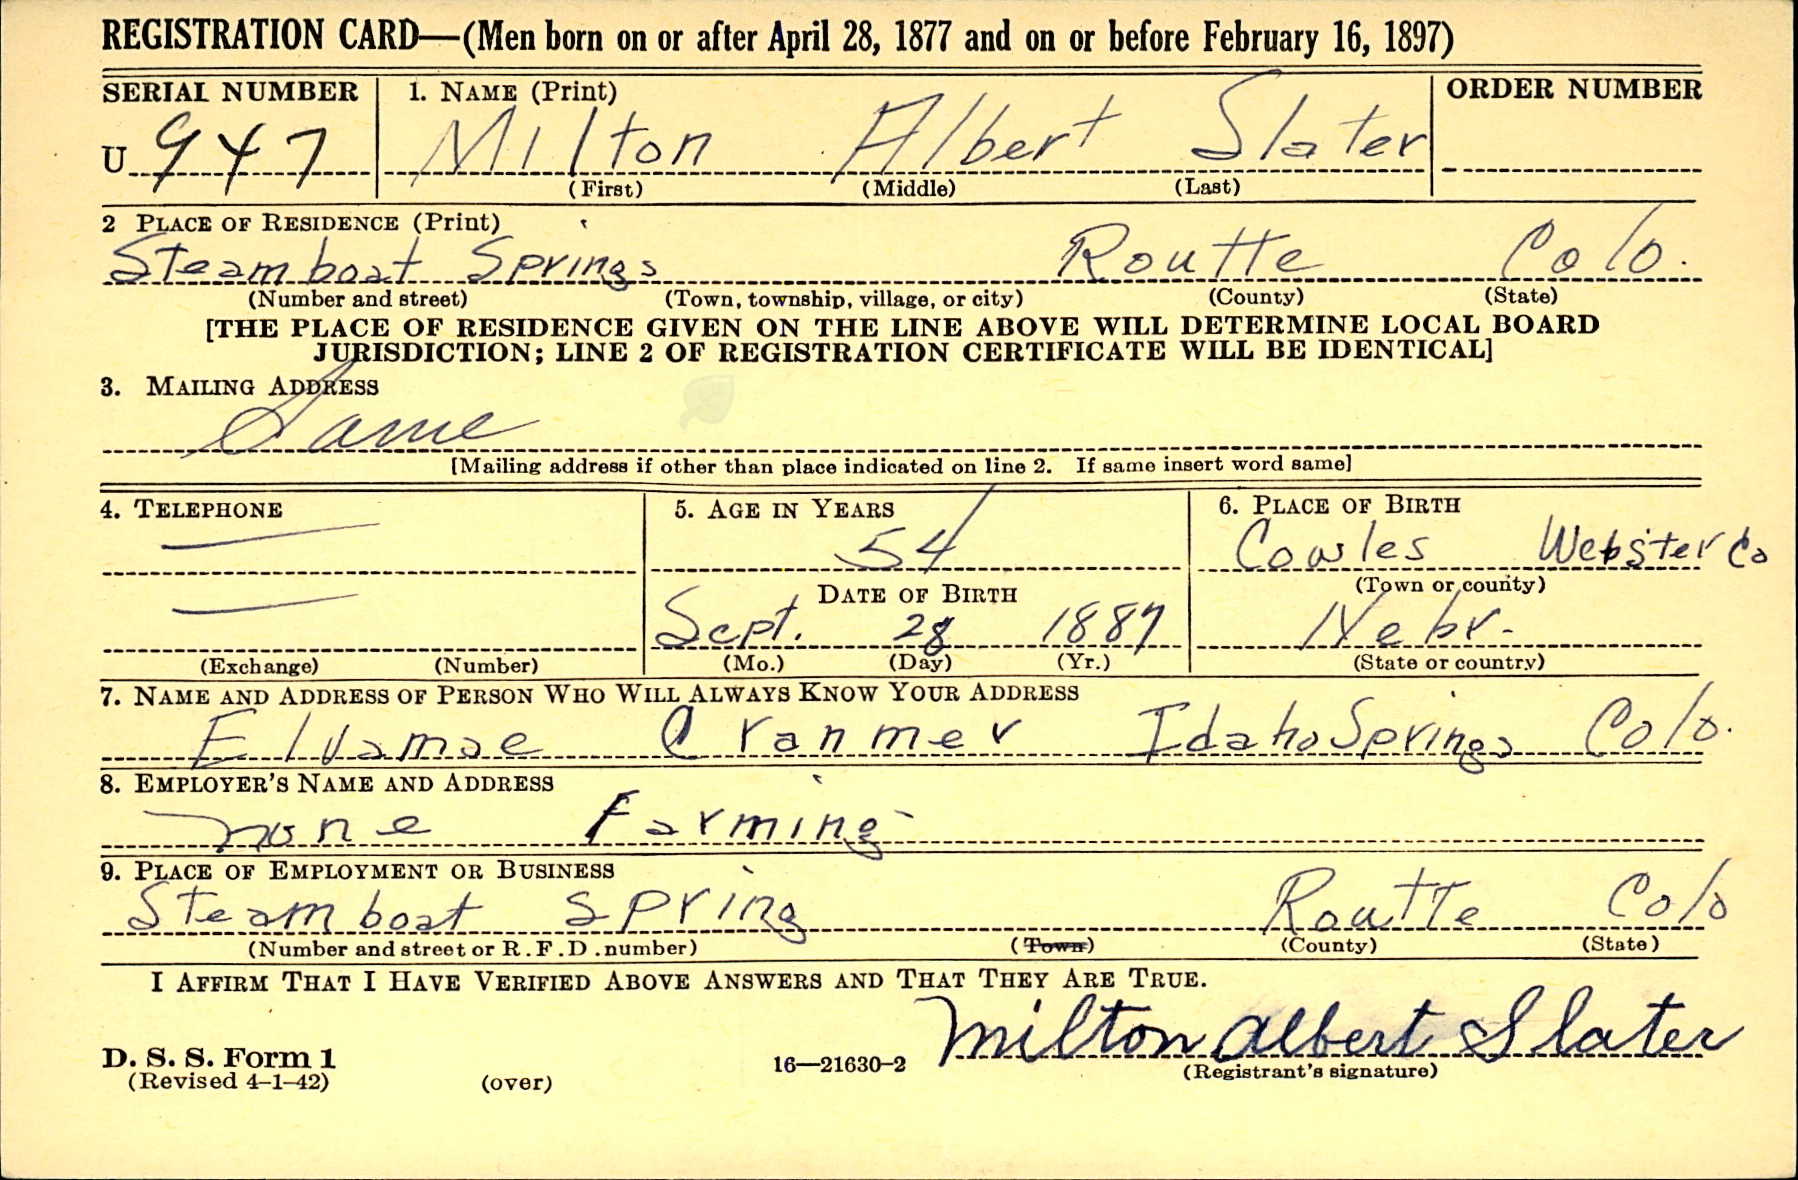 REGISTRATION CARD—(Men born on or after April 28, 1877 and on or before February 16, 1897)
SERIAL NUMBER
1. NAME (Print)
ORDER NUMBER
U 947
Milton Albert Slater
(First) (Middle) (Last)
2 PLACE OF RESIDENCE (Print)
Steamboat Springs Routte Colo.
(Number and street) (Town, township, village, or city) (County) (State)
[THE PLACE OF RESIDENCE GIVEN ON THE LINE ABOVE WILL DETERMINE LOCAL BOARD
JURISDICTION; LINE 2 OF REGISTRATION CERTIFICATE WILL BE IDENTICAL]
3. MAILING ADDRESS
Same
[Mailing address if other than place indicated on line 2. If same insert word same]
4. TELEPHONE
5. AGE IN YEARS
6. PLACE OF BIRTH
—
54
Cowles Webster Co
DATE OF BIRTH
(Town or county)
—
Sept. 28 1887
Nebr.
(Exchange) (Number)
(Mo.) (Day) (Yr.)
(State or country)
7. NAME AND ADDRESS OF PERSON WHO WILL ALWAYS KNOW YOUR ADDRESS
Elvamae Cranmer Idaho Springs Colo.
8. EMPLOYER'S NAME AND ADDRESS
none Farming
9. PLACE OF EMPLOYMENT OR BUSINESS
Steamboat Spring Routte Colo
(Number and street or R.F.D. number) (Town) (County) (State)
I AFFIRM THAT I HAVE VERIFIED ABOVE ANSWERS AND THAT THEY ARE TRUE.
Milton Albert Slater
D. S. S. Form 1
(Revised 4-1-42) (over) 16—21630-2 (Registrant's signature)